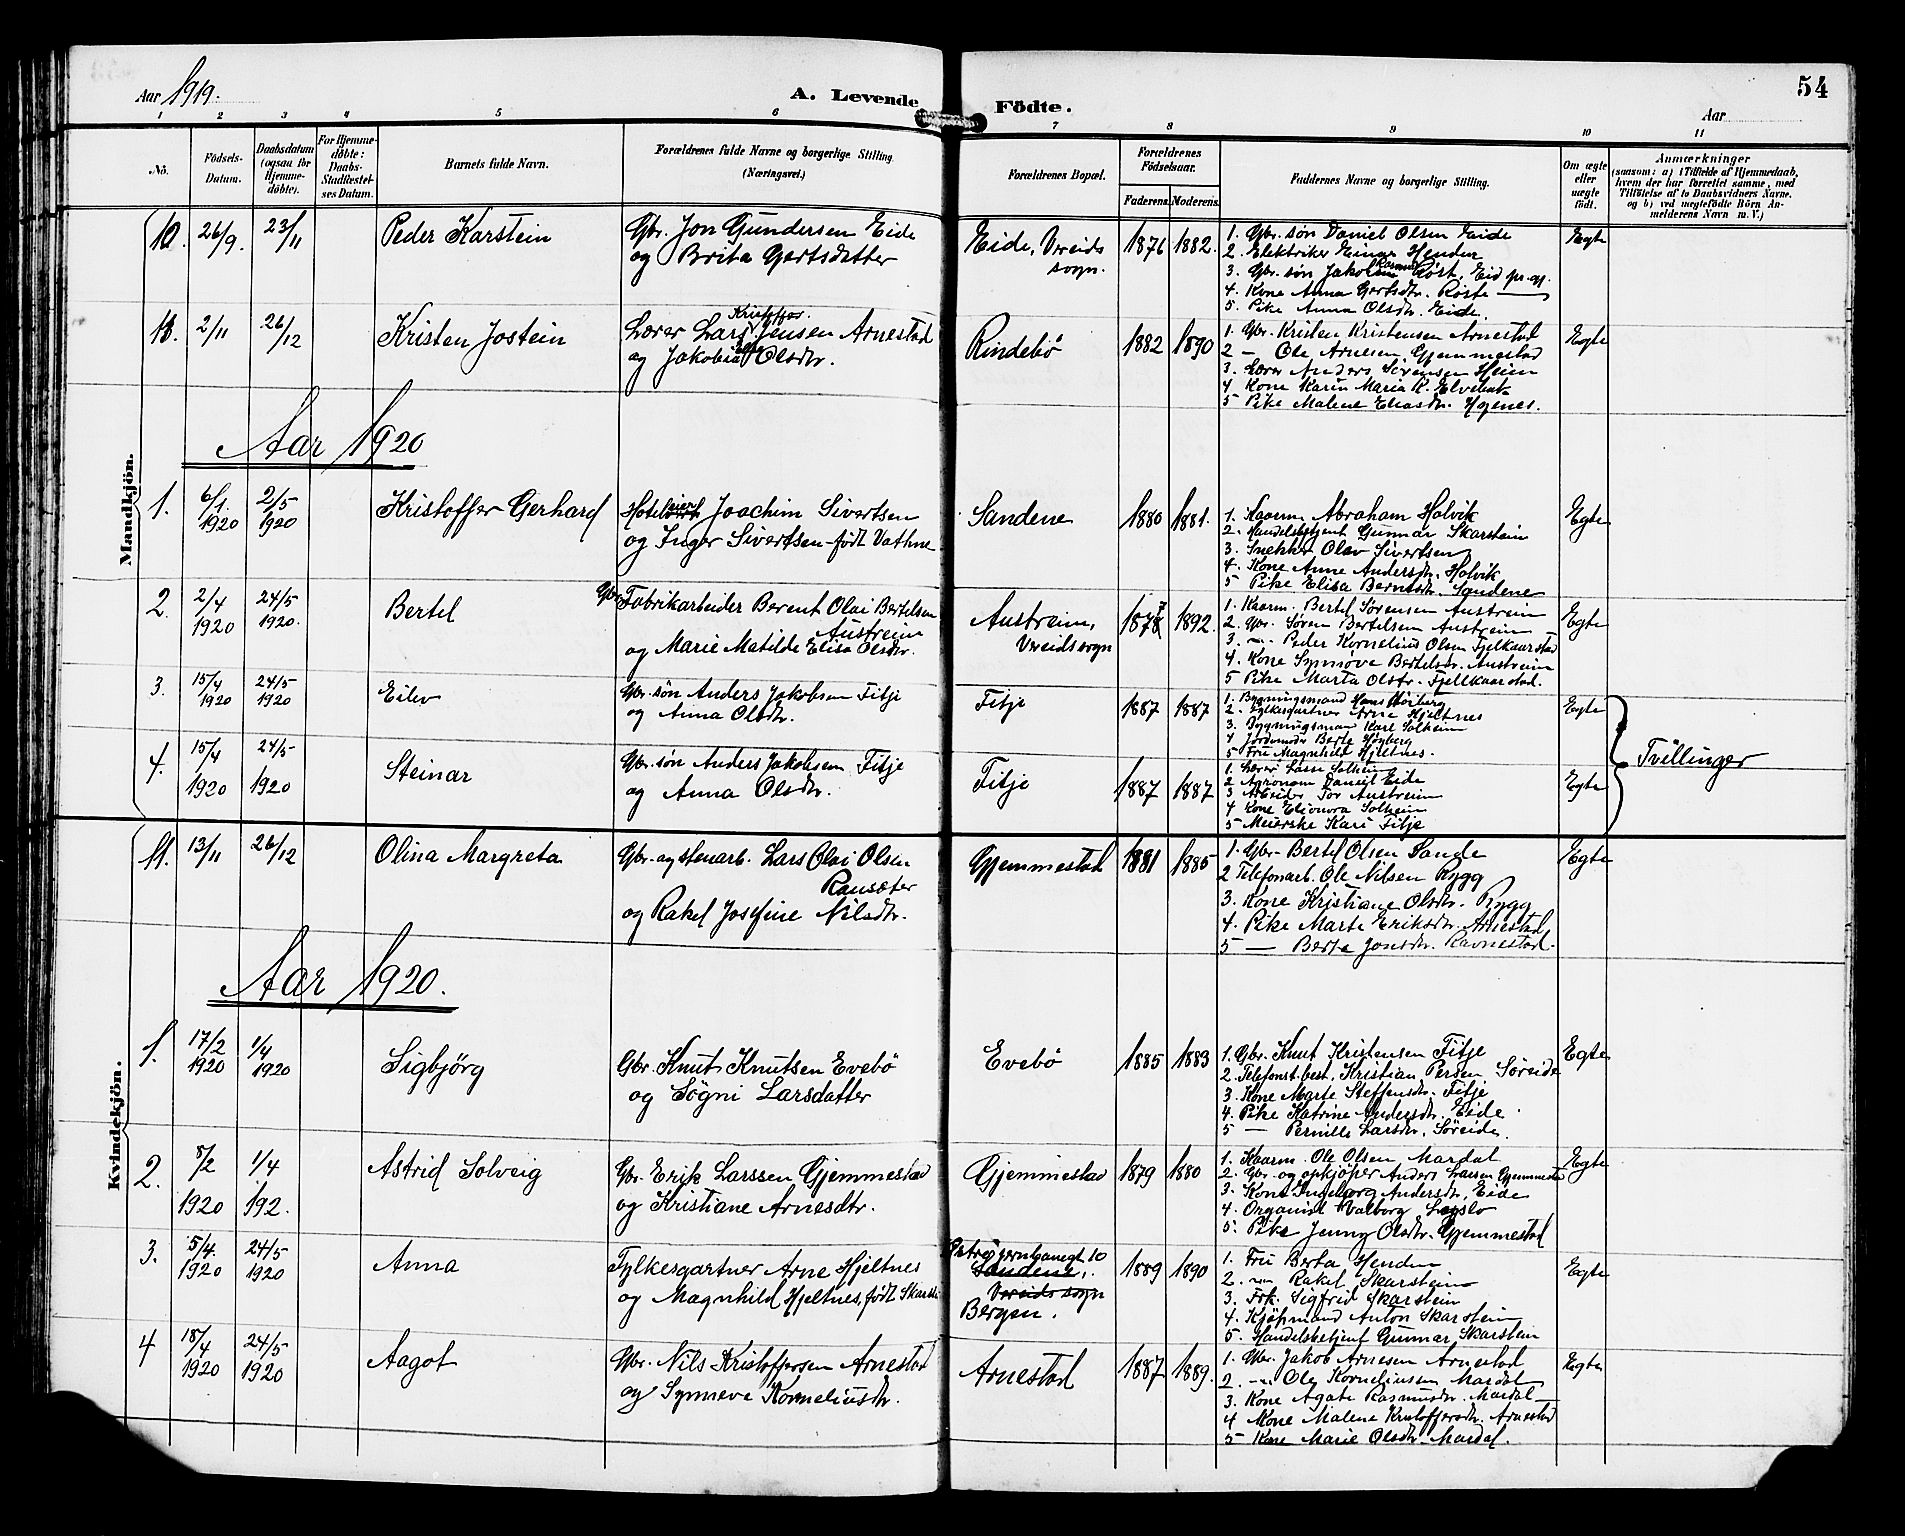 Aar 1919.
A. Levende Födte.
54
Aar
1 2 3 4 5 6 7 8 9 10 11
No.
Födsels-Datum.
Daabsdatum (ogsaa for Hjemme-döbte).
For Hjemme-döbte: Daabs-Stadfæstel-ses Datum.
Barnets fulde Navn.
Forældrenes fulde Navne og borgerlige Stilling (Næringsvei.)
Forældrenes Bopæl.
Forældrenes Födselsaar.
Faderens. Moderens.
Faddernes Navne og borgerlige Stilling.
Om ægte eller uægte födt.
Anmærkninger (saasom: a) i Tilfælde af Hjemmedaab, hvem der har forrettet samme, med Tilföielse af to Daabsvidners Navne. og b) ved uegtefödte Börn An-melderens Navn m. V.)
Mandkjön.
10. 26/9. 23/11 Peder Karstein
Gbr. Jon Gundersen Eide
og Brita Gertsdatter
Eide, Vereids
sogn.
1876 1882.
1. Gbr. søn Daniel Olsen Eide
2. Elektriker Einar Henden
3. Gbr. søn Jakob Røst, Eid pr.gj.
4. Kone Anna Gertsdtr. Røste —
5. Pike Anna Olsdtr. Eide.
Egte
2/11 26/12 Kristen Jostein
Kristoffer.
Lærer Lars Jensen Arnestad
og Jakobia Olsdtr.
Rindebö
1882 1890
1. Gbr. Kristen Kristensen Arnestad
2 — Ole Arnesen Gjemmestad
3. Lærer Anders Sörensen Heien
4. Kone Karin Maria K. Elvebak
5 Pike Malene Eliasdtr. Hognes.
Egte
Aar 1920
1. 6/1. 1920 2/5 1920 Kristoffer Gerhard
Hoteleier Joachim Sivertsen
og Inger Sivertsen-født Vathne
Sandene
1880 1881.
1. Kaarm. Abraham Holvik
2. Handelsbetjent Gunnar Skarstein
3. Snekker Olav Sivertsen
4. Kone Anne Andersdtr. Holvik
5 Pike Elisa Berntsdtr. Sandene
Egte
2. 2/4 1920 24/5 1920. Bertel
Gbr. Fabrikarbeider Berent Olai Bertelsen
Austreim
og Marie Matilde Elisa Olsdtr.
Austreim,
Vereids sogn
1878 1892.
1. Kaarm. Bertel Sørensen Austreim
2. Gbr. Søren Bertelsen Austreim
3. — Peder Kornelius Olsen Fjelkaarstad
4. Kone Synnøve Bertelsdtr. Austreim
5 Pike Marta Olsdtr. Fjellkaarstad.
Egte
3. 15/4 1920 24/5 1920 Eilev
Gbr. søn Anders Jakobsen Fitje
og Anna Olsdtr.
Fitje
1887 1887
1. Bygningsmand Hans Høiberg
2. Fylkesgartner Arne Hjeltnes
3. Bygningsman Karl Solheim
4 Jordmoder Berte Høyberg
5 Fru Magnhild Hjeltnes.
Egte
4. 15/4 1920 24/5 1920 Steinar
Gbr. søn Anders Jakobsen Fitje
og Anna Olsdtr.
Fitje
1887 1887
1. Lærer Lasse Solheim
2 Agronom Daniel Eide
3 Arbeider Tor Austreim
4 Kone Elionora Solheim
5 Meierske Kari Fitje
Egte
Tvillinger
Kvindekjön.
11. 13/11 26/12 Olina Margreta
Gbr. og stenarb. Lars Olai Olsen
Ransæter
og Rakel Josefine Nilsdtr.
Gjemmestad
1881 1885
1. Gbr. Bertel Olsen Sande
2 Telefonarb. Ole Nilsen Rygg
3. Kone Kristiane Olsdtr. Rygg
4. Pike Marte Eriksdtr. Arnestad
5 — Berta Jonsdtr. Ravnestad.
Egte
Aar 1920.
1. 17/2 1920 1/4 1920 Sigbjörg
Gbr. Knut Knutsen Evebö
og Sögni Larsdatter
Evebö
1885 1883
1. Gbr. Knut Kristensen Fitje
2. Telefonst.best. Kristian Persen Söreide
3. Kone Marte Steffensdtr. Fitje
4. Pike Katrine Andersdtr. Eide
5 — Pernille Larsdtr. Söreide.
Egte
2. 8/2 1920 1/4 192. Astrid Solveig
Gbr. Erik Larssen Gjemmestad
og Kristiane Arnesdtr.
Gjemmestad
1879 1880
1. Kaarm. Ole Olsen Mardal
2. Gbr. og opkjöper Anders Larsen Gjemmestad
3. Kone Ingeborg Andersdtr. Eide
4. Organist Valborg
5. Pike Jenny Olsdtr. Gjemmestad
Egte
3. 5/4. 1920 24/5 1920 Anna
Fylkesgartner Arne Hjeltnes
og Magnhild Hjeltnes, født Skarstei
10
Sandene,
Vereids sogn
Bergen.
1889 1890
1. Fru Berta Henden
2. — Rakel Skarstein
3. Frk. Sigfrid Skarstein
4. Kjöpmand Anton Skarstein
5. Handelsbetjent Gunnar Skarstein
Egte
4 18/4 1920 24/5 1920 Aagot
Gbr. Nils Kristoffersen Arnestad
og Synneve Korneliusdtr.
Arnestad
1887 1889.
1. Gbr. Jakob Arnesen Arnestad
2. — Ole Korneliussen Mardal
3. Kone Agate Rasmusdtr. Mardal
4 Kone Malene Kristoffersdtr. Arnestad
5 Kone Marie Olsdtr. Mardal.
Egte